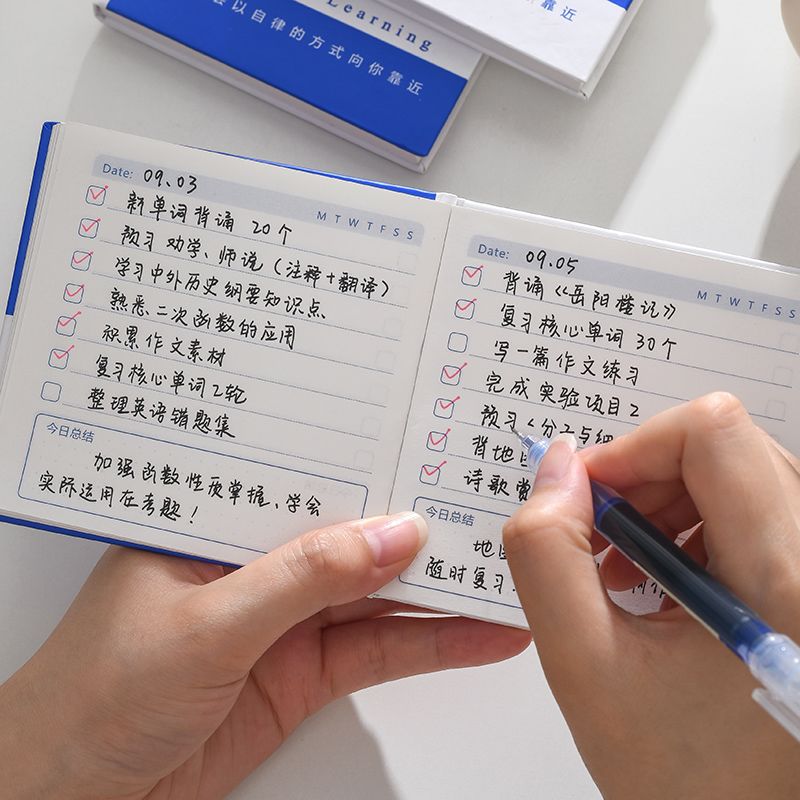 Learning
以自律的方式向你靠近
你靠近
Date: 09.03
M T W T F S S
新单词背诵 20个
预习 劝学、师说（注释+翻译）
学习中外历史纲要知识点
熟悉二次函数的应用
积累作文素材
复习核心单词2轮
整理英语错题集
今日总结
加强函数性质掌握、学会
实际运用在考题！
Date: 09.05
M T W T F S S
背诵《岳阳楼记》
复习核心单词30个
写一篇作文练习
完成实验项目2
预习《分子与细
背地
诗歌赏
今日总结
地
随时复习